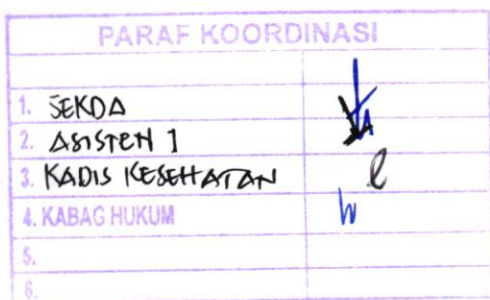 PARAF KOORDINASI
1. SEKDA
2. ASISTEN 1
3. KADIS KESEHATAN
4. KABAG HUKUM
5.
6.